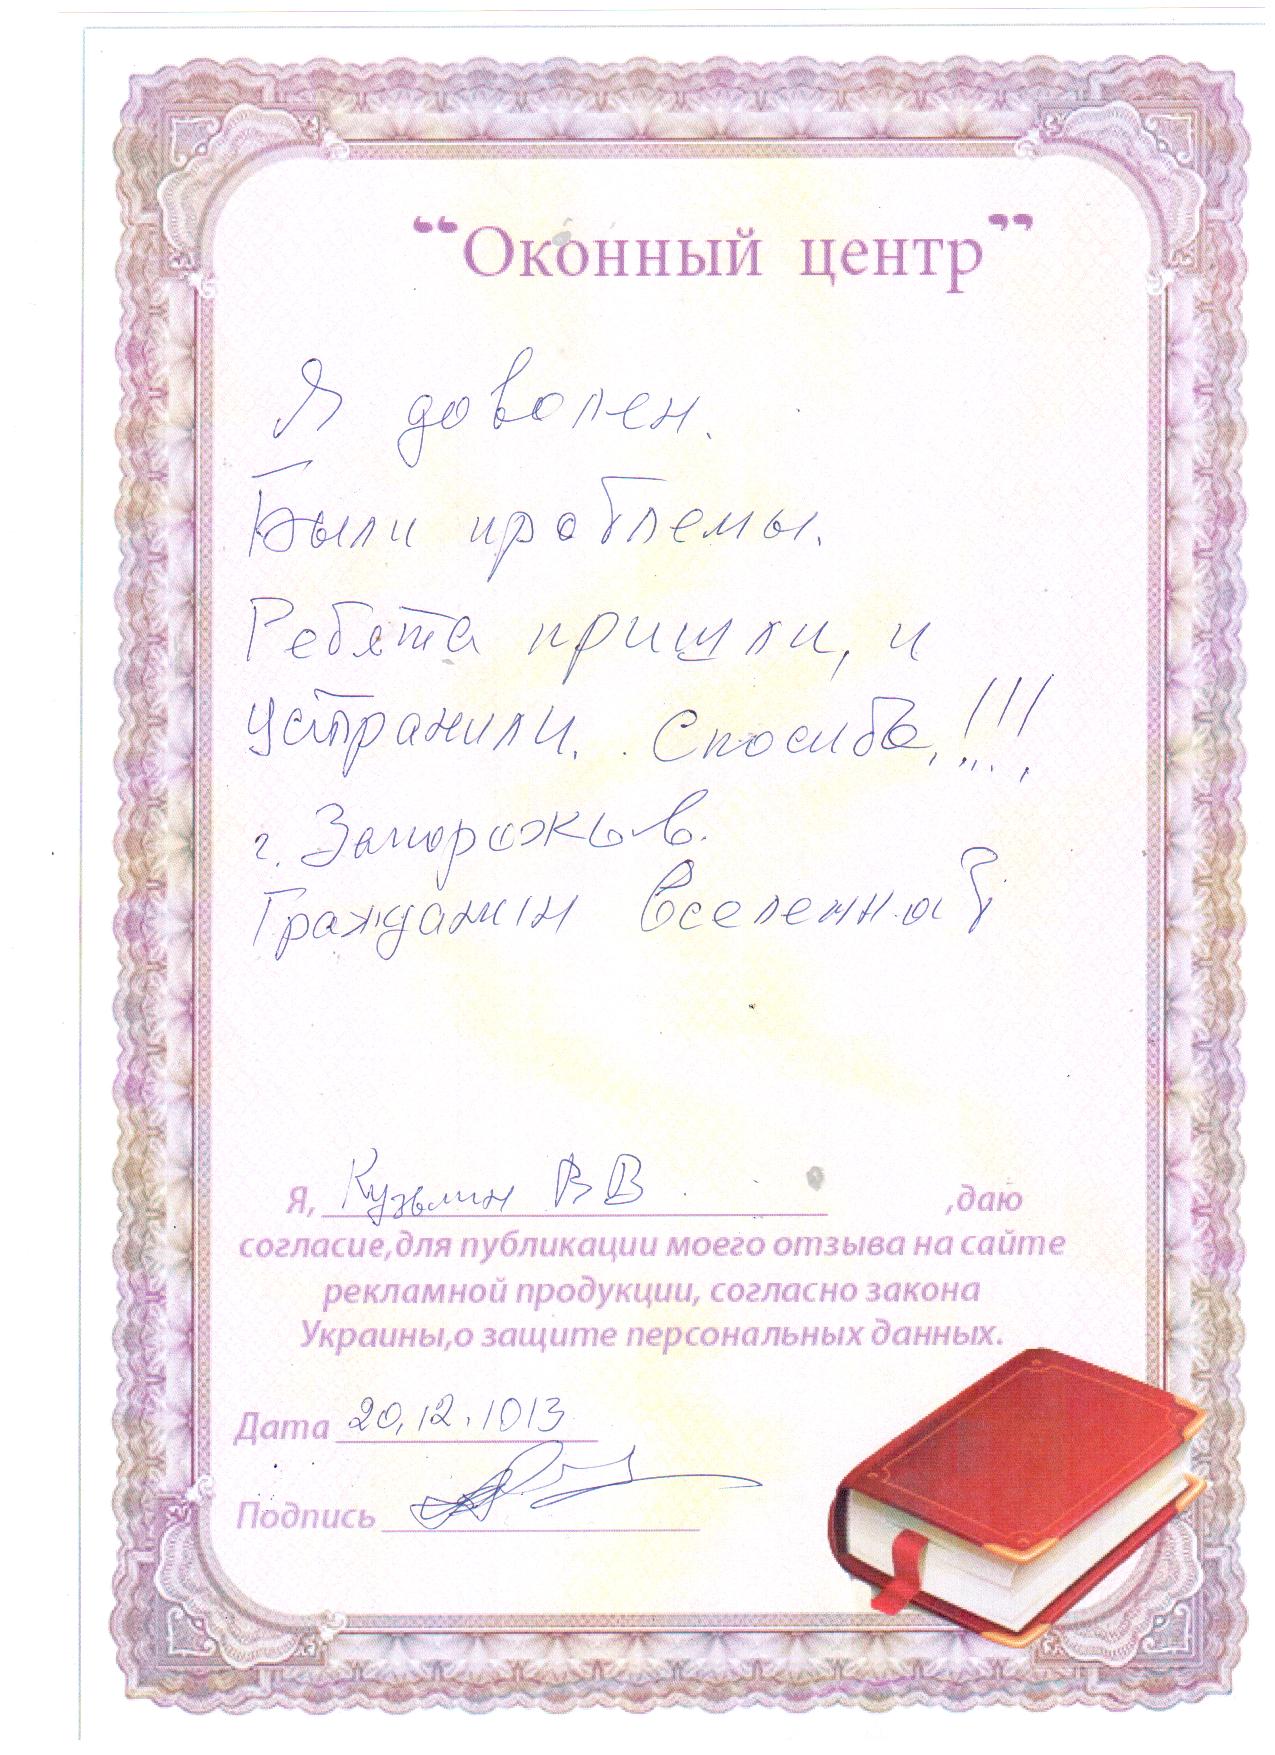 “Оконный центр”
Я доволен.
Были проблемы.
Ребята пришли, и
устранили. Спосиба!!!
г. Запорожье.
Гражданин Вселенной
Я, Кузьмин В В ,даю
согласие,для публикации моего отзыва на сайте
рекламной продукции, согласно закона
Украины,о защите персональных данных.
Дата 20.12.1013
Подпись